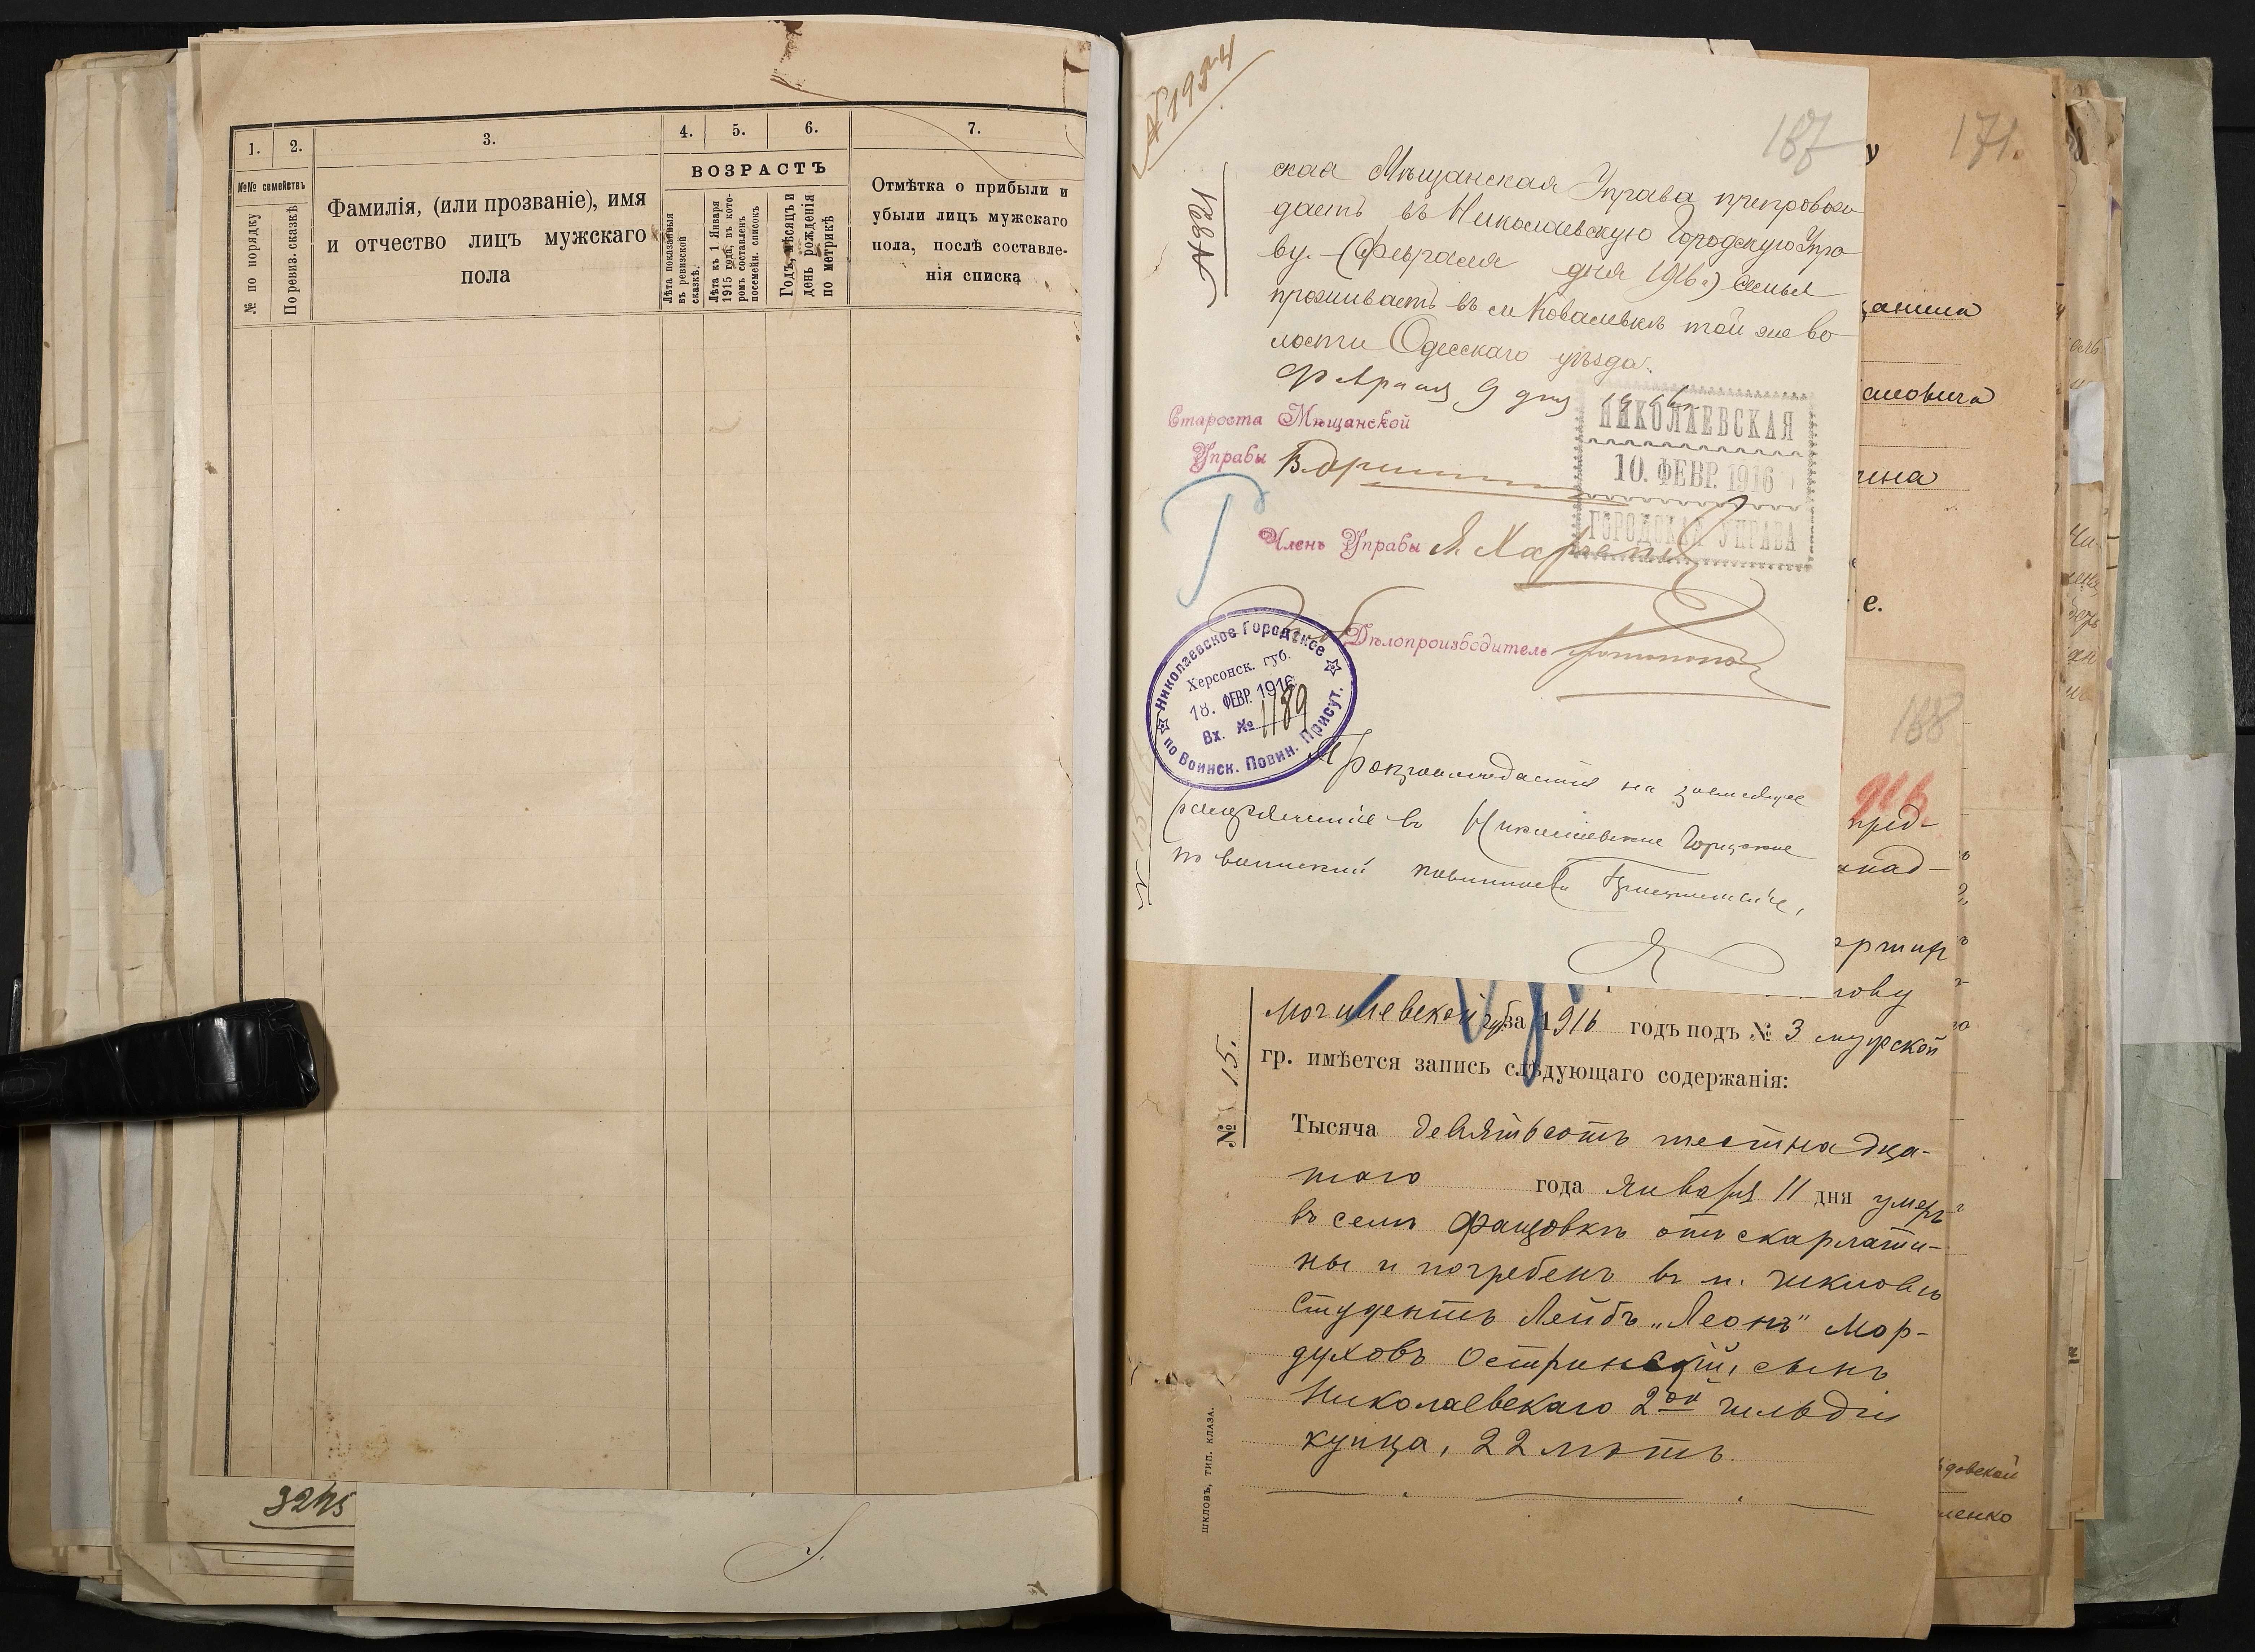 1.
2.
3.
4.
5.
6.
7.
№№ семействъ
ВОЗРАСТЪ
№ по порядку
По ревиз. сказкѣ
Фамилія, (или прозваніе), имя
и отчество лицъ мужскаго
пола
Лѣта показанныя
въ ревизской
сказкѣ.
Лѣта къ 1 Января
1915 года, въ кото-
ромъ составленъ
посемейн. списокъ
Годъ, мѣсяцъ и
день рожденія
по метрикѣ
Отмѣтка о прибыли и
убыли лицъ мужскаго
пола, послѣ составле-
нія списка
3245
187
171.
ская Мѣщанская Управа препровож
даетъ въ Николаевскую Городскую Упра
ву. (Февраля дня 1916 г.) Семья
проживаетъ въ м Ковалевкѣ той же во
лости Одесскаго уѣзда.
Февраля 9 дня 1916
Староста Мѣщанской
Управы
НИКОЛАЕВСКАЯ
10. ФЕВР. 1916
ГОРОДСКАЯ УПРАВА
Членъ Управы
Дѣлопроизводитель
Николаевское Городское
Херсонск. губ.
18. ФЕВР. 1916
Вх. № 1189
по Воинск. Повин. Присут.
на зависящее
распоряженіе въ Николаевское Городское
по воинской повинности Присутствіе,
188
916
пред-
е.
Могилевской губ за 1916 годъ подъ № 3 мужской
гр. имѣется запись слѣдующаго содержанія:
№ 15.
Тысяча девятьсотъ шестнадца-
таго года Января 11 дня умеръ
въ селѣ Фащовкѣ отъ скарлати-
ны и погребенъ въ м. Шкловѣ
студентъ Лейбъ „Леонъ" Мор-
духовъ Остринскій, сынъ
Николаевскаго 2ой гильдіи
купца, 22 лѣтъ.
ШКЛОВЪ, ТИП. КЛАЗА.